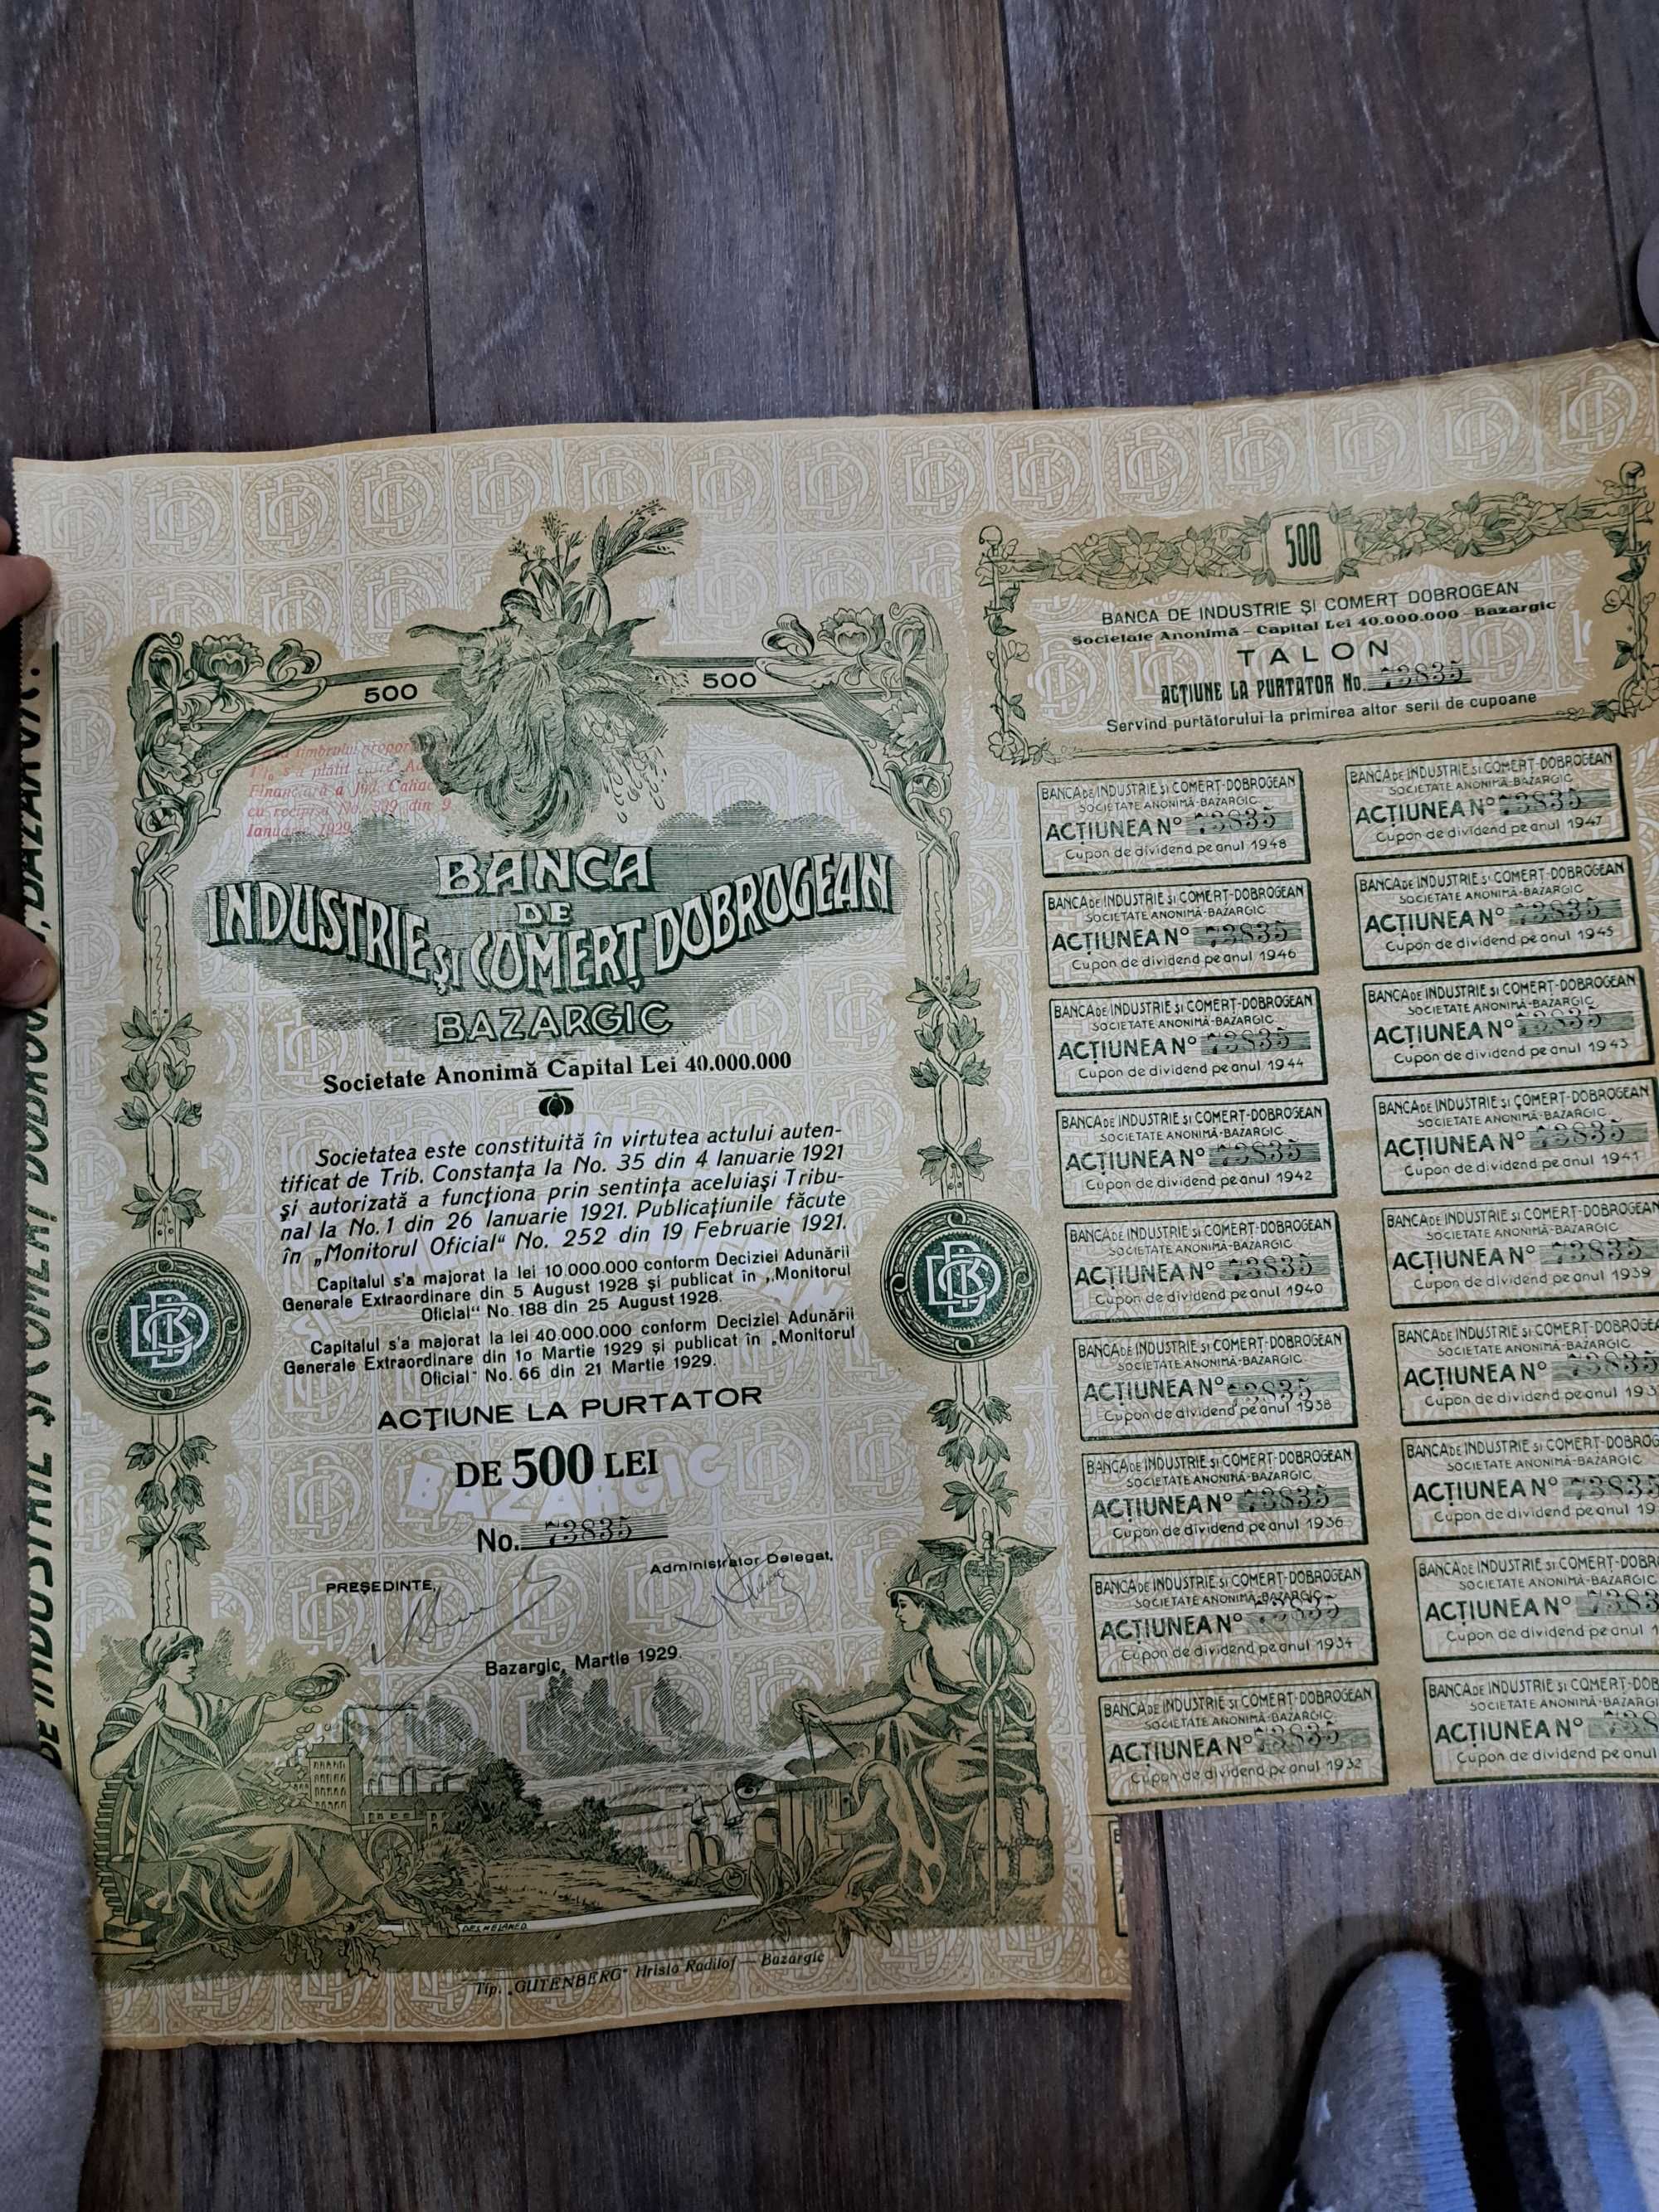 500
500
BANCA
DE
INDUSTRIE ȘI COMERȚ DOBROGEAN
BAZARGIC
Societate Anonimă Capital Lei 40.000.000
Societatea este constituită în virtutea actului auten-
tificat de Trib. Constanța la No. 35 din 4 Ianuarie 1921
și autorizată a funcționa prin sentința aceluiași Tribu-
nal la No. 1 din 26 Ianuarie 1921. Publicațiunile făcute
în „Monitorul Oficial“ No. 252 din 19 Februarie 1921.
Capitalul s'a majorat la lei 10 000.000 conform Deciziei Adunării
Generale Extraordinare din 5 August 1928 și publicat în „Monitorul
Oficial“ No. 188 din 25 August 1928.
Capitalul s'a majorat la lei 40.000.000 conform Deciziei Adunării
Generale Extraordinare din 10 Martie 1929 și publicat în „Monitorul
Oficial" No. 66 din 21 Martie 1929.
ACȚIUNE LA PURTATOR
DE 500 LEI
BAZARGIC
No. 73835
PREȘEDINTE,
Administrator Delegat,
Bazargic, Martie 1929.
Tip. „GUTENBERG" Hristo Radilof — Bazargic
timbrului propor
1% s'a plătit
Financiară a Jud. Caliac
cu recipisa No. din 9
Ianuarie 1929
DE INDUSTRIE ȘI COMERȚ
500
BANCA DE INDUSTRIE ȘI COMERȚ DOBROGEAN
Societate Anonimă – Capital Lei 40.000.000 – Bazargic
TALON
ACȚIUNE LA PURTATOR No. 73835
Servind purtătorului la primirea altor serii de cupoane
BANCA DE INDUSTRIE ȘI COMERȚ-DOBROGEAN
SOCIETATE ANONIMĂ-BAZARGIC
ACȚIUNEA No 73835
Cupon de dividend pe anul 1948
BANCA DE INDUSTRIE ȘI COMERȚ-DOBROGEAN
SOCIETATE ANONIMĂ-BAZARGIC
ACȚIUNEA No 73835
Cupon de dividend pe anul 1947
BANCA DE INDUSTRIE ȘI COMERȚ-DOBROGEAN
SOCIETATE ANONIMĂ-BAZARGIC
ACȚIUNEA No 73835
Cupon de dividend pe anul 1946
BANCA DE INDUSTRIE ȘI COMERȚ-DOBROGEAN
SOCIETATE ANONIMĂ-BAZARGIC
ACȚIUNEA No 73835
Cupon de dividend pe anul 1945
BANCA DE INDUSTRIE ȘI COMERȚ-DOBROGEAN
SOCIETATE ANONIMĂ-BAZARGIC
ACȚIUNEA No 73835
Cupon de dividend pe anul 1944
BANCA DE INDUSTRIE ȘI COMERȚ-DOBROGEAN
SOCIETATE ANONIMĂ-BAZARGIC
ACȚIUNEA No 73835
Cupon de dividend pe anul 1943
BANCA DE INDUSTRIE ȘI COMERȚ-DOBROGEAN
SOCIETATE ANONIMĂ-BAZARGIC
ACȚIUNEA No 73835
Cupon de dividend pe anul 1942
BANCA DE INDUSTRIE ȘI COMERȚ-DOBROGEAN
SOCIETATE ANONIMĂ-BAZARGIC
ACȚIUNEA No 73835
Cupon de dividend pe anul 1941
BANCA DE INDUSTRIE ȘI COMERȚ-DOBROGEAN
SOCIETATE ANONIMĂ-BAZARGIC
ACȚIUNEA No 73835
Cupon de dividend pe anul 1940
BANCA DE INDUSTRIE ȘI COMERȚ-DOBROGEAN
SOCIETATE ANONIMĂ-BAZARGIC
ACȚIUNEA No 73835
Cupon de dividend pe anul 1939
BANCA DE INDUSTRIE ȘI COMERȚ-DOBROGEAN
SOCIETATE ANONIMĂ-BAZARGIC
ACȚIUNEA No 73835
Cupon de dividend pe anul 1938
BANCA DE INDUSTRIE ȘI COMERȚ-DOBROGEA
SOCIETATE ANONIMĂ-BAZARGIC
ACȚIUNEA No 73835
Cupon de dividend pe anul 193
BANCA DE INDUSTRIE ȘI COMERȚ-DOBROGEAN
SOCIETATE ANONIMĂ-BAZARGIC
ACȚIUNEA No 73835
Cupon de dividend pe anul 1936
BANCA DE INDUSTRIE ȘI COMERȚ-DOBROG
SOCIETATE ANONIMĂ-BAZARGIC
ACȚIUNEA No 73835
Cupon de dividend pe anul 19
BANCA DE INDUSTRIE ȘI COMERȚ-DOBROGEAN
SOCIETATE ANONIMĂ-BAZARGIC
ACȚIUNEA No 73835
Cupon de dividend pe anul 1934
BANCA DE INDUSTRIE ȘI COMERȚ-DOBR
SOCIETATE ANONIMĂ-BAZARGIC
ACȚIUNEA No 7383
Cupon de dividend pe anul 1
BANCA DE INDUSTRIE ȘI COMERȚ-DOBROGEAN
SOCIETATE ANONIMĂ-BAZARGIC
ACȚIUNEA No 73835
Cupon de dividend pe anul 1932
BANCA DE INDUSTRIE ȘI COMERȚ-DOB
SOCIETATE ANONIMĂ-BAZARGI
ACȚIUNEA No 738
Cupon de dividend pe anul